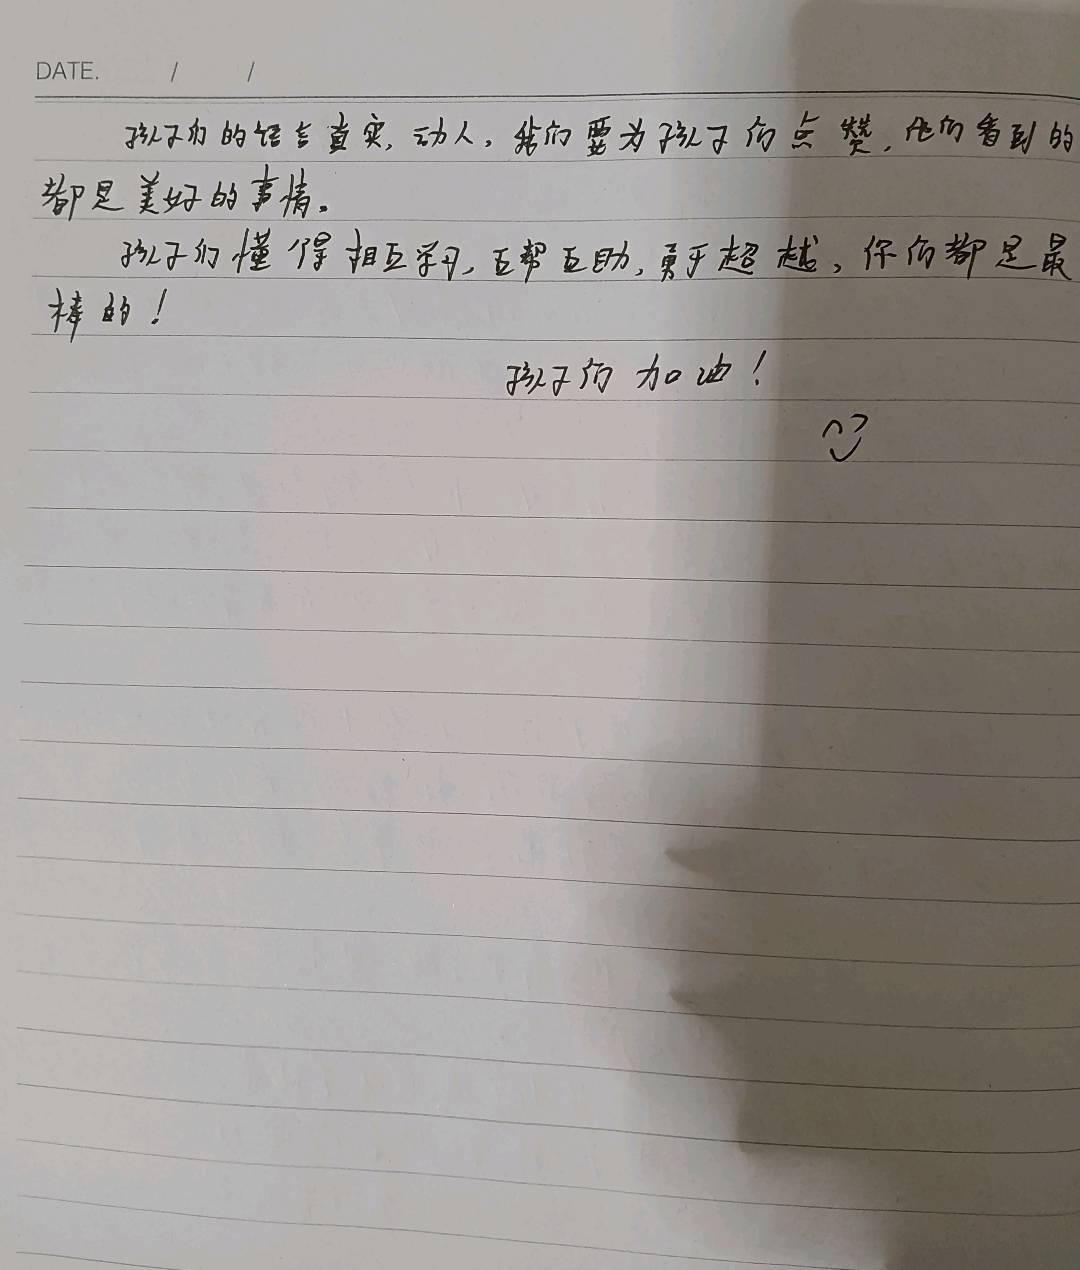 DATE. / /
孩子们的语言真实,动人,我们要为孩子们点赞,他们看到的
都是美好的事情。
孩子们懂得相互学习,互帮互助,勇于超越,你们都是最
棒的!
孩子们加油!